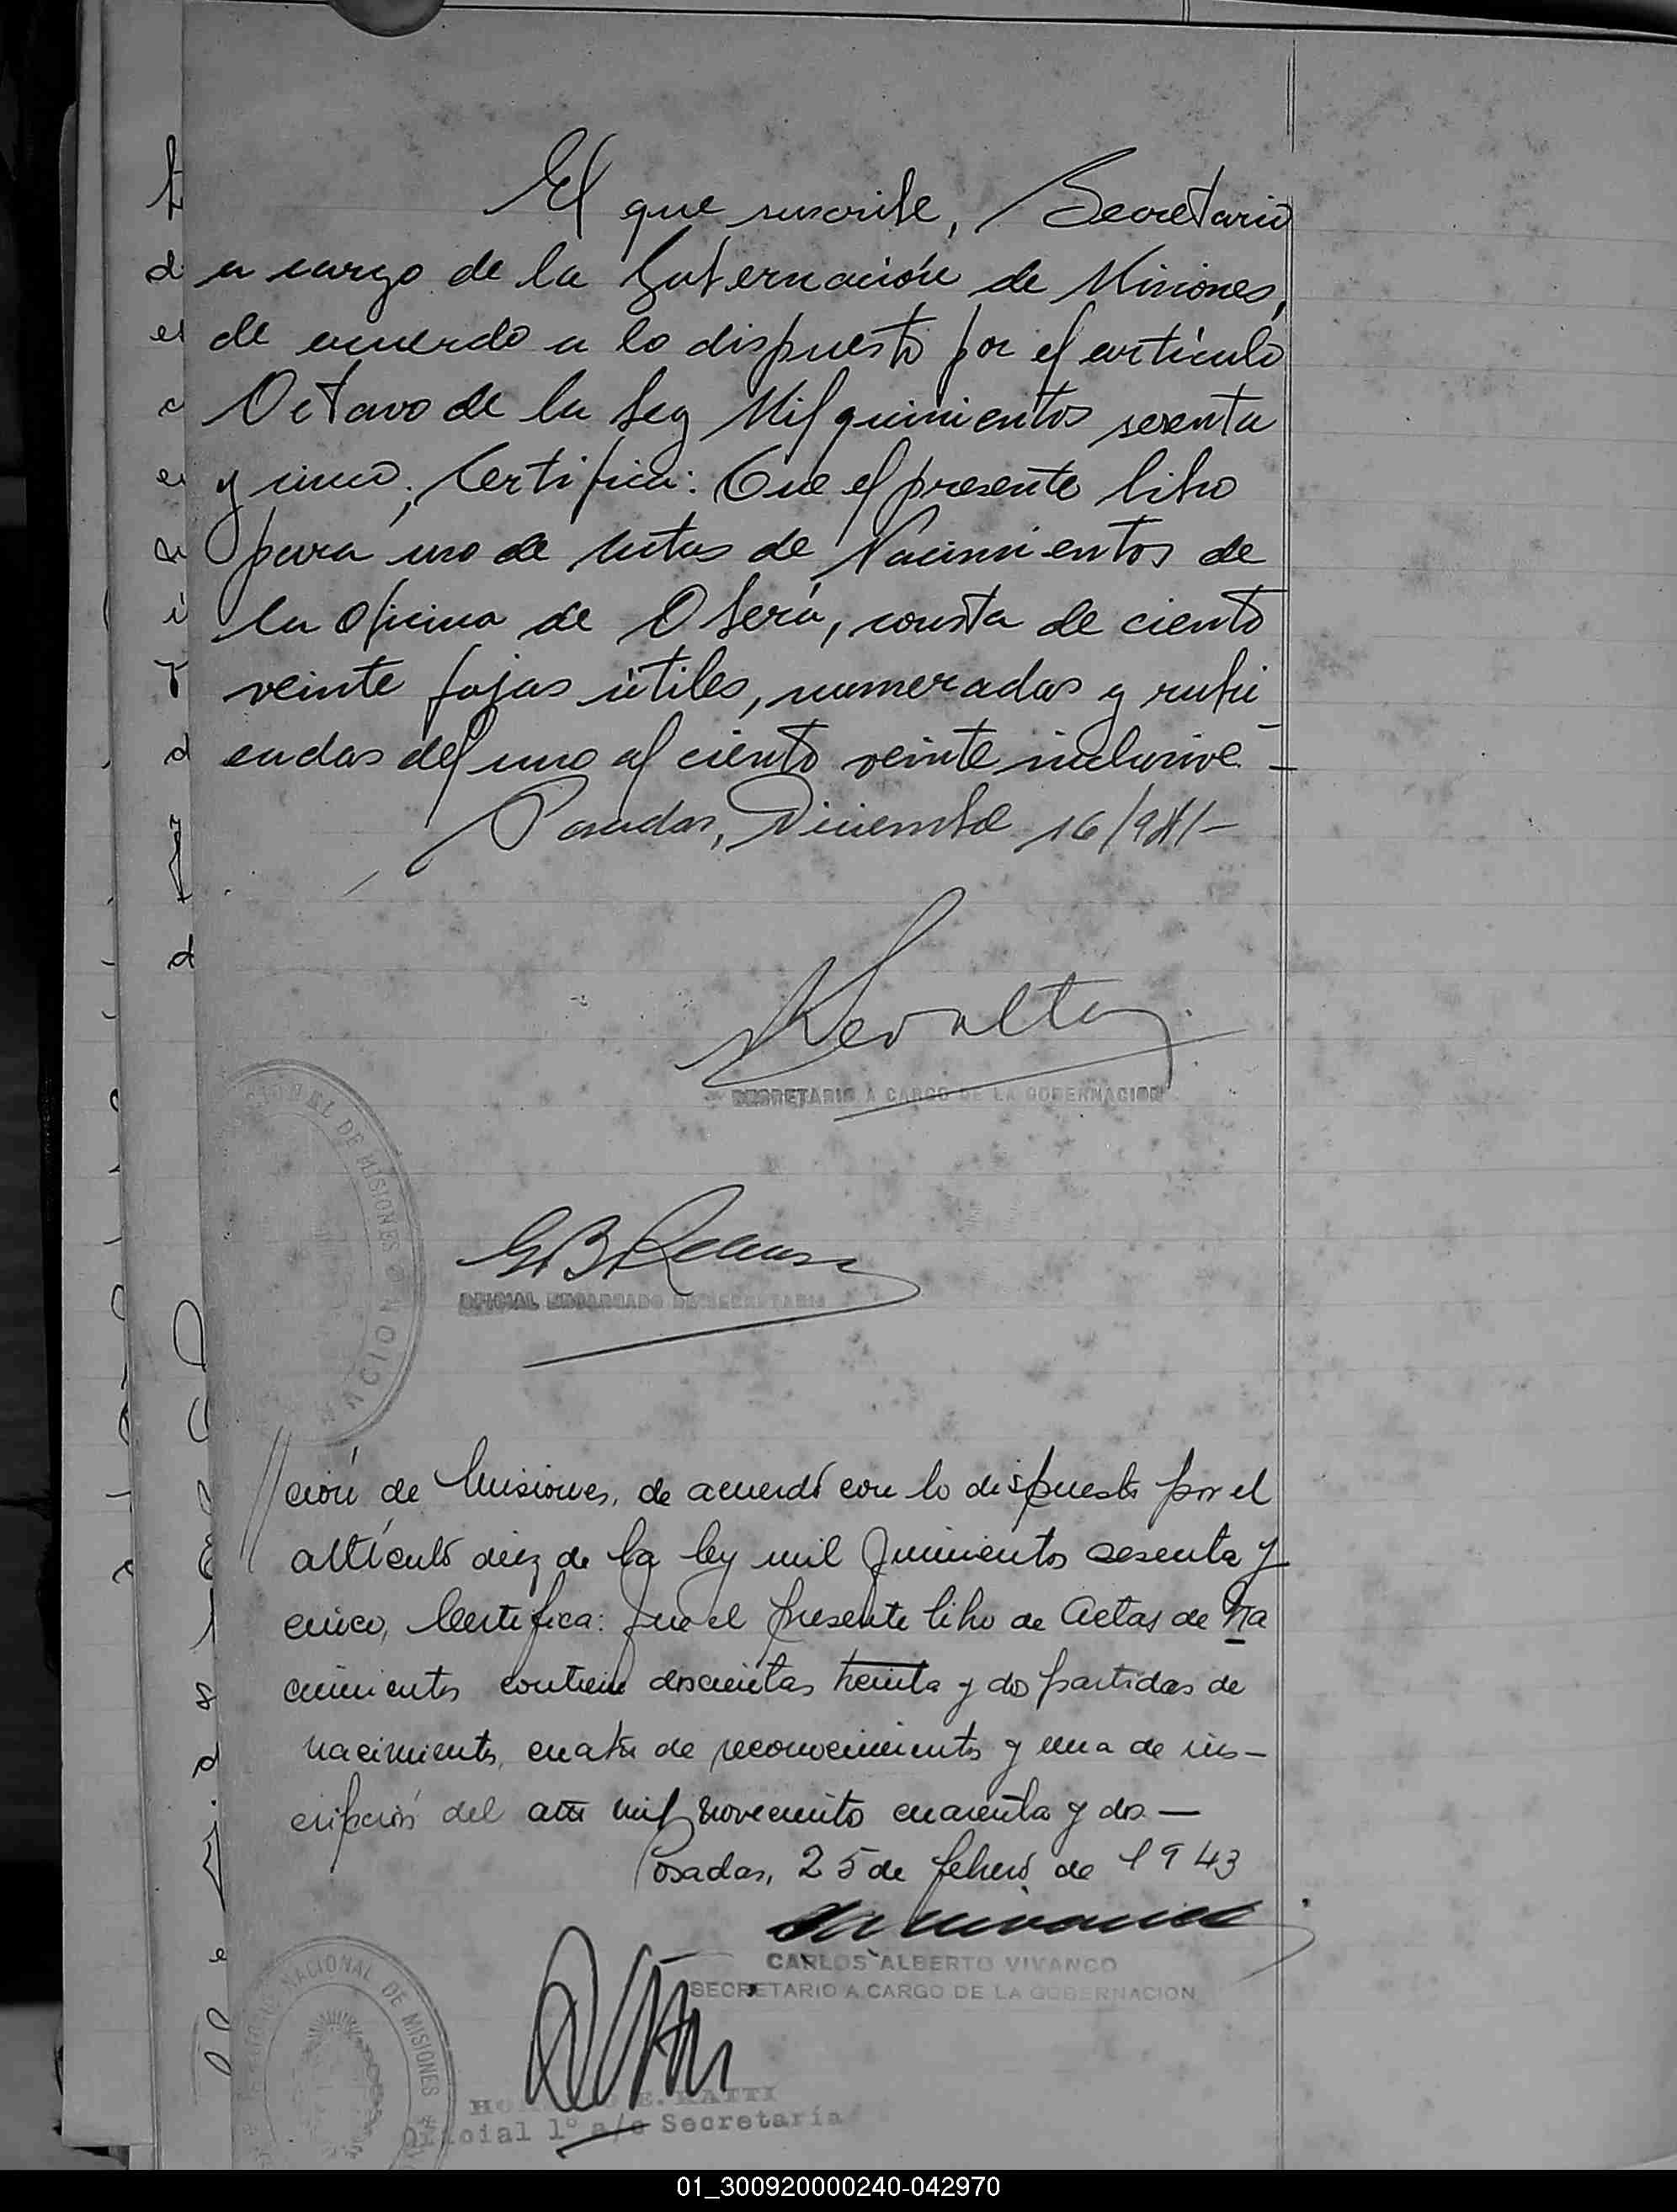 El que suscribe, Secretario
a cargo de la Gobernación de Misiones,
de acuerdo a lo dispuesto por el artículo
Octavo de la Ley Mil quinientos sesenta
y cinco, Certifica: Que el presente libro
para uso de Actas de Nacimientos de
la Oficina de Oberá, consta de ciento
veinte fojas útiles, numeradas y rubri
cadas del uno al ciento veinte inclusive.-
Posadas, Diciembre 16/941-
SECRETARIO A CARGO DE LA GOBERNACION
DE MISIONES
OFICIAL ENCARGADO DE SECRETARIA
//ción de Misiones, de acuerdo con lo dispuesto por el
artículo diez de la ley mil quinientos sesenta y
cinco, Certifica: que el presente libro de Actas de Na
cimientos contiene doscientas treinta y dos partidas de
nacimientos, cuatro de reconocimientos y una de ins-
cripción del año mil novecientos cuarenta y dos.-
Posadas, 25 de febrero de 1943
CARLOS ALBERTO VIVANCO
SECRETARIO A CARGO DE LA GOBERNACION
NACIONAL DE MISIONES
E. RATTI
Oficial 1º a/c Secretaría
01_300920000240-042970